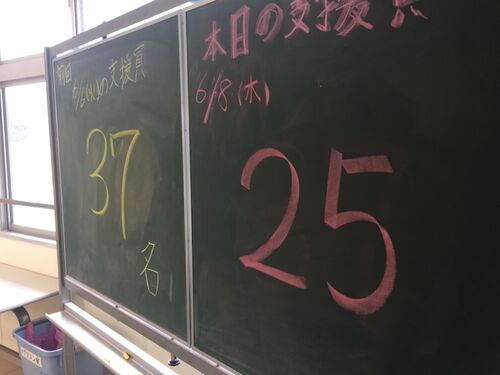 前回
6/6(火)の支援員
37
名
本日の支援員
6/8(木)
25